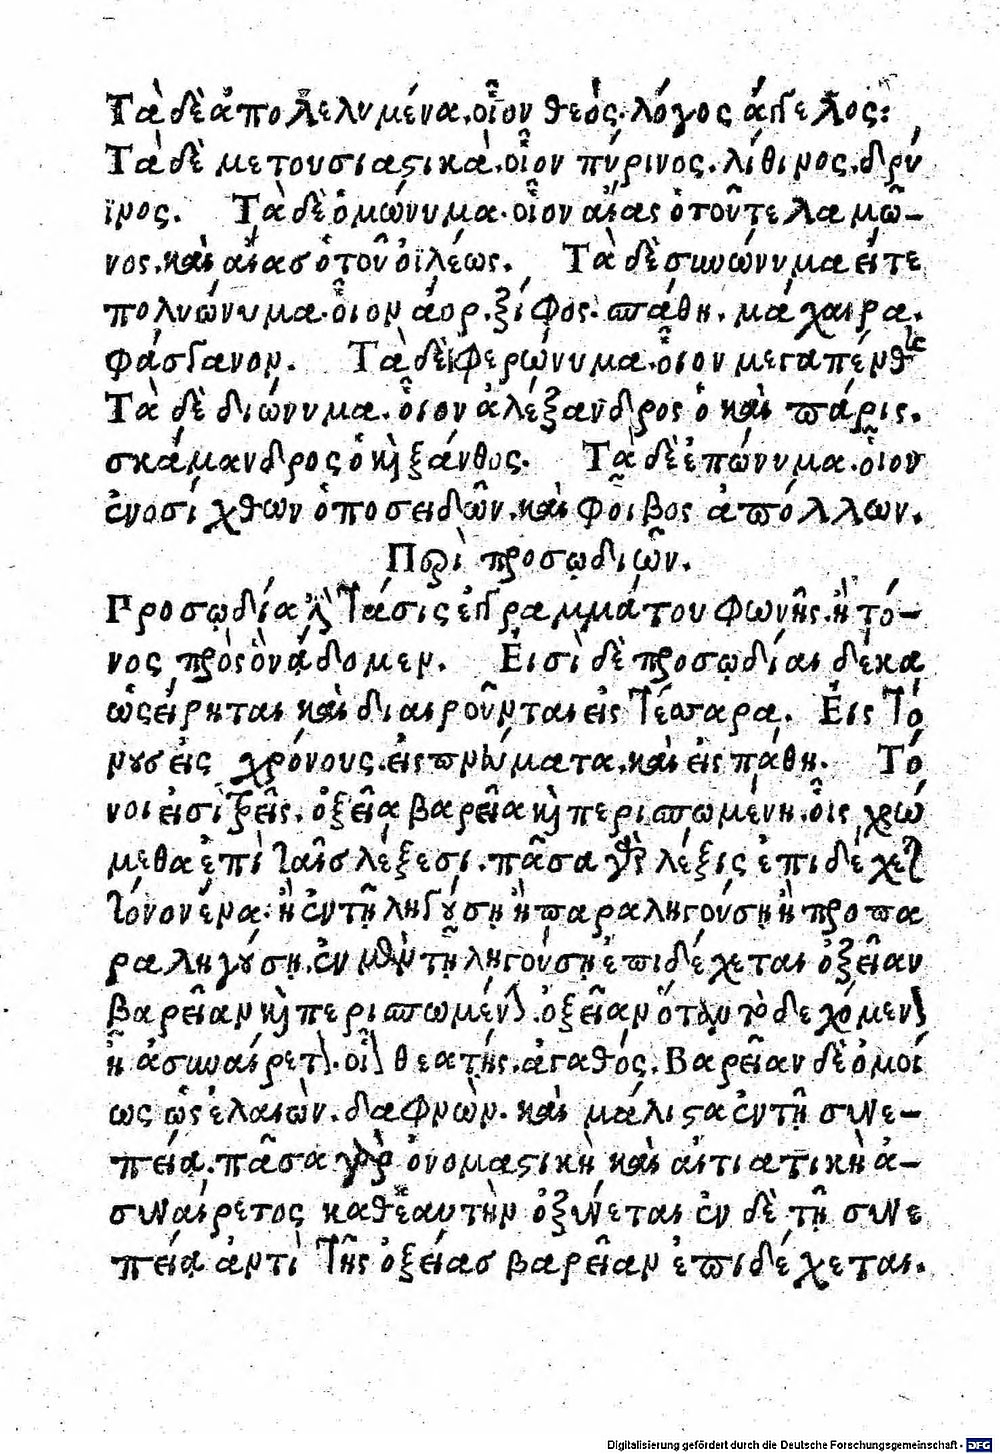 Τὰ δὲ ἀπολελυμένα.οἷον θεός.λόγος ἄγγελος:
Τὰ δὲ μετουσιαστικὰ.οἷον πύρινος.λίθινος.δρύ
ϊνος. Τὰ δὲ ὁμώνυμα.οἷον αἴας ὁ τοῦ τελαμῶ-
νος.καὶ αἴασ ὁ τοῦ ὀϊλέως. Τὰ δὲ συνώνυμα εἴτε
πολυώνυμα.οἷον ἄορ.ξίφος.σπάθη.μάχαιρα.
φάσγανον. Τὰ δὲ φερώνυμα.οἷον μεγαπένθης
Τὰ δὲ διώνυμα.οἷον ἀλέξανδρος ὁ καὶ πάρις.
σκάμανδρος ὁ καὶ ξάνθος. Τὰ δὲ ἐπώνυμα.οἷον
ἐνοσίχθων ὁ ποσειδῶν.καὶ φοῖβος ἀπόλλων.
Περὶ προσῳδιῶν.
Προσῳδία ἐστὶ τάσις ἐγγραμμάτου φωνῆς.ἢ τό-
νος πρὸς ὃν ᾄδομεν. Εἰσὶ δὲ προσῳδίαι δέκα
ὡς εἴρηται καὶ διαιροῦνται εἰς τέσσαρα. Εἰς τό
νους εἰς χρόνους.εἰς πνεύματα.καὶ εἰς πάθη. Τό
νοι εἰσὶ τρεῖς.ὀξεῖα βαρεῖα καὶ περισπωμένη.οἷς χρώ
μεθα ἐπὶ ταῖσ λέξεσι.πᾶσα γὰρ λέξις ἐπιδέχεται
τόνον ἕνα.ἢ ἐν τῇ ληγούσῃ ἢ παραληγούσῃ ἢ προπα
ραληγούσῃ.ἐν μὲν τῇ ληγούσῃ ἐπιδέχεται ὀξεῖαν
βαρεῖαν καὶ περισπωμένην.ὀξεῖαν ὅταν τὸ δεχόμενον
ᾖ ἀσυναίρετον.οἷον θεατής.ἀγαθός.Βαρεῖαν δὲ ὁμοί
ως ὡς ἐλαιὼν.δαφνὼν.καὶ μάλιστα ἐν τῇ συνε-
πείᾳ.πᾶσα γὰρ ὀνομαστικὴ καὶ αἰτιατικὴ ἀ-
συναίρετος καθ' ἑαυτὴν ὀξύνεται ἐν δὲ τῇ συνε
πείᾳ ἀντὶ τῆς ὀξείασ βαρεῖαν ἐπιδέχεται.
Digitalisierung gefördert durch die Deutsche Forschungsgemeinschaft - DFG